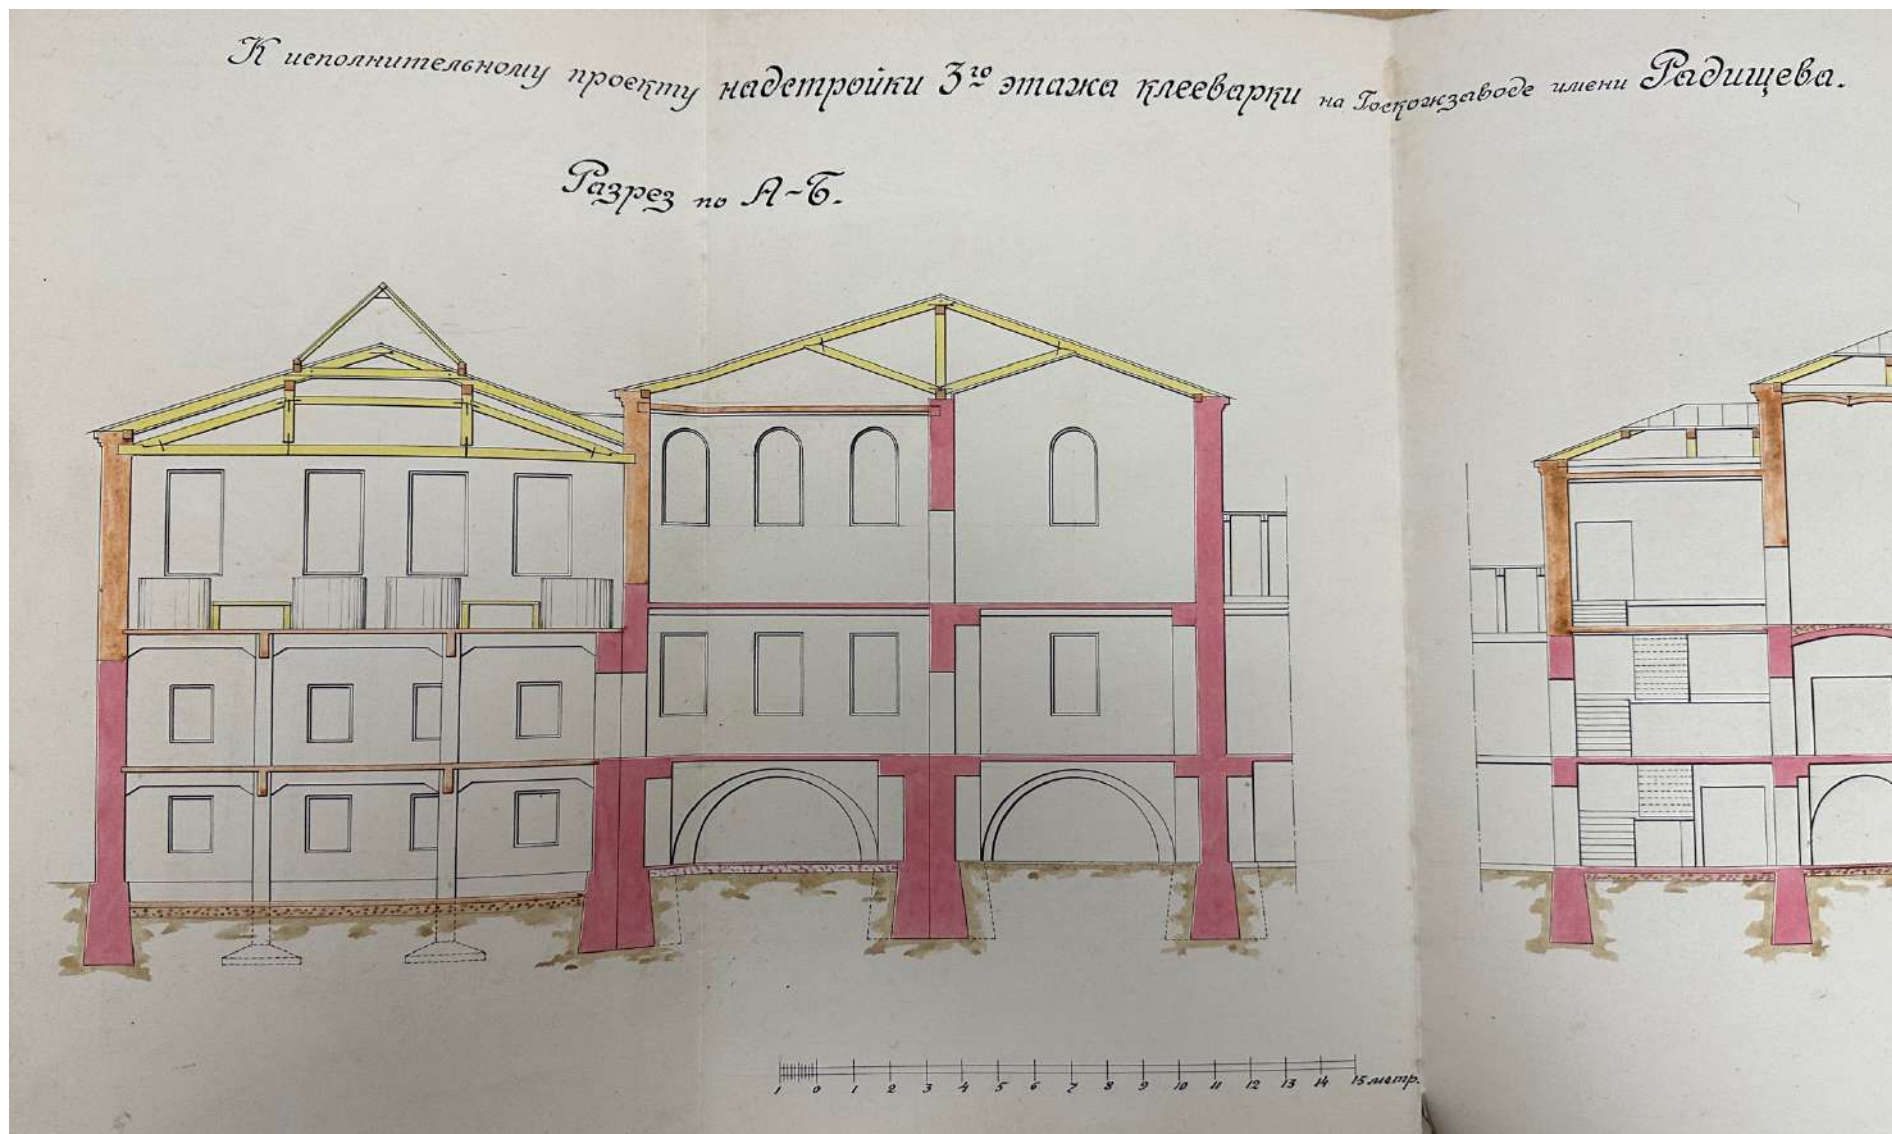 К исполнительному проекту надстройки 3го этажа клееварки на Госкожзаводе имени Радищева.
Разрез по А-Б.
1 0 1 2 3 4 5 6 7 8 9 10 11 12 13 14 15 метр.